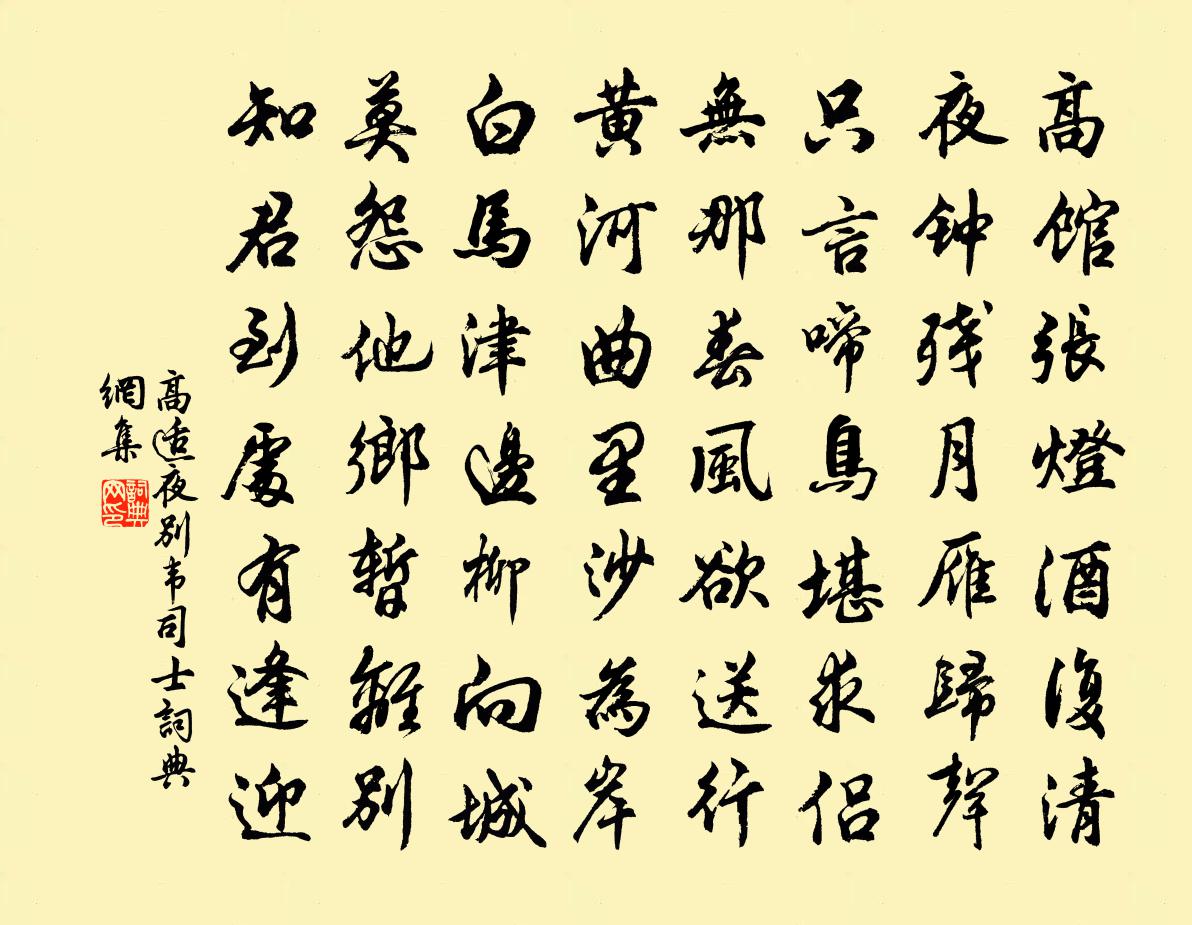 高馆張燈酒復清
夜钟残月雁歸聲
只言啼鳥堪求侣
無那春風欲送行
黄河曲里沙為岸
白馬津邊柳向城
莫怨他鄉暫離别
知君到處有逢迎
高适夜别韦司士詞典
網集
詞典
网印